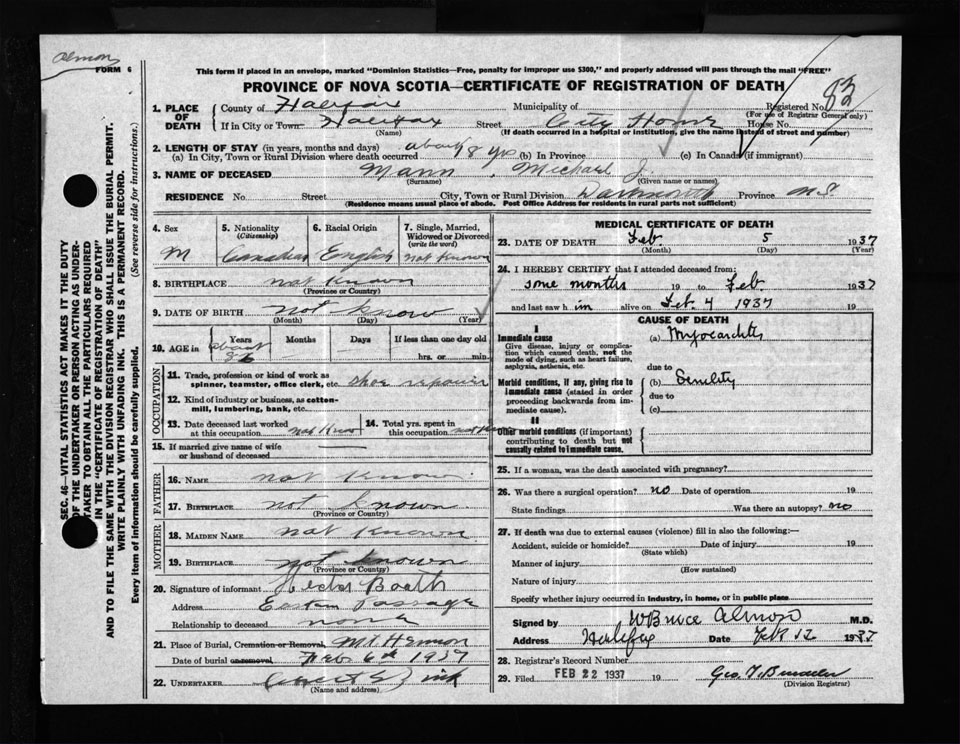 Almon
FORM 6
This form if placed in an envelope, marked "Dominion Statistics—Free, penalty for improper use $300," and properly addressed will pass through the mail "FREE"
PROVINCE OF NOVA SCOTIA—CERTIFICATE OF REGISTRATION OF DEATH
83
1. PLACE OF DEATH County of Halifax Municipality of Registered No. (For use of Registrar General only)
If in City or Town Halifax Street City Home House No.
(Name) (If death occurred in a hospital or institution, give the name instead of street and number)
2. LENGTH OF STAY (in years, months and days)
(a) In City, Town or Rural Division where death occurred about 8 yrs (b) In Province (c) In Canada (if immigrant)
3. NAME OF DECEASED Mann, Michael J.
(Surname) (Given name or names)
RESIDENCE No. Street City, Town or Rural Division Dartmouth Province N.S.
(Residence means usual place of abode. Post Office Address for residents in rural parts not sufficient)
4. Sex 5. Nationality (Citizenship) 6. Racial Origin 7. Single, Married, Widowed or Divorced (write the word)
M Canadian English not known
8. BIRTHPLACE not known
(Province or Country)
9. DATE OF BIRTH not know
(Month) (Day) (Year)
10. AGE in Years Months Days If less than one day old
about 86 hrs. or min.
OCCUPATION
11. Trade, profession or kind of work as spinner, teamster, office clerk, etc. shoe repairer
12. Kind of industry or business, as cotton-mill, lumbering, bank, etc.
13. Date deceased last worked at this occupation not know 14. Total yrs. spent in this occupation
15. If married give name of wife or husband of deceased
FATHER
16. NAME not know
17. BIRTHPLACE not known
(Province or Country)
MOTHER
18. MAIDEN NAME not known
19. BIRTHPLACE not known
(Province or Country)
20. Signature of informant Hector Booth
Address Eastern Passage
Relationship to deceased none
21. Place of Burial, Cremation or Removal, Mt. Hermon
Date of burial or removal Feb 6th 1937
22. UNDERTAKER
(Name and address)
MEDICAL CERTIFICATE OF DEATH
23. DATE OF DEATH Feb. 5 1937
(Month) (Day) (Year)
24. I HEREBY CERTIFY that I attended deceased from:
some months 19 to Feb. 1937
and last saw him alive on Feb. 4 1937 19
CAUSE OF DEATH
I
Immediate cause (a) Myocarditis
Give disease, injury or complication which caused death, not the mode of dying, such as heart failure, asphyxia, asthenia, etc.
due to
Morbid conditions, if any, giving rise to immediate cause (stated in order proceeding backwards from immediate cause).
(b) Senility
due to
(c)
II
Other morbid conditions (if important) contributing to death but not causally related to immediate cause.
25. If a woman, was the death associated with pregnancy?
26. Was there a surgical operation? no Date of operation 19
State findings Was there an autopsy? no
27. If death was due to external causes (violence) fill in also the following:—
Accident, suicide or homicide? Date of injury 19
(State which)
Manner of injury
(How sustained)
Nature of injury
Specify whether injury occurred in industry, in home, or in public place
Signed by W Bruce Almon M.D.
Address Halifax Date Feb 12 1937
28. Registrar's Record Number
29. Filed FEB 22 1937 19
(Division Registrar)
SEC. 46—VITAL STATISTICS ACT MAKES IT THE DUTY
OF THE UNDERTAKER OR PERSON ACTING AS UNDER-
TAKER TO OBTAIN ALL THE PARTICULARS REQUIRED
IN THE "CERTIFICATE OF REGISTRATION OF DEATH"
AND TO FILE THE SAME WITH THE DIVISION REGISTRAR WHO SHALL ISSUE THE BURIAL PERMIT.
WRITE PLAINLY WITH UNFADING INK. THIS IS A PERMANENT RECORD.
Every item of information should be carefully supplied. (See reverse side for instructions).